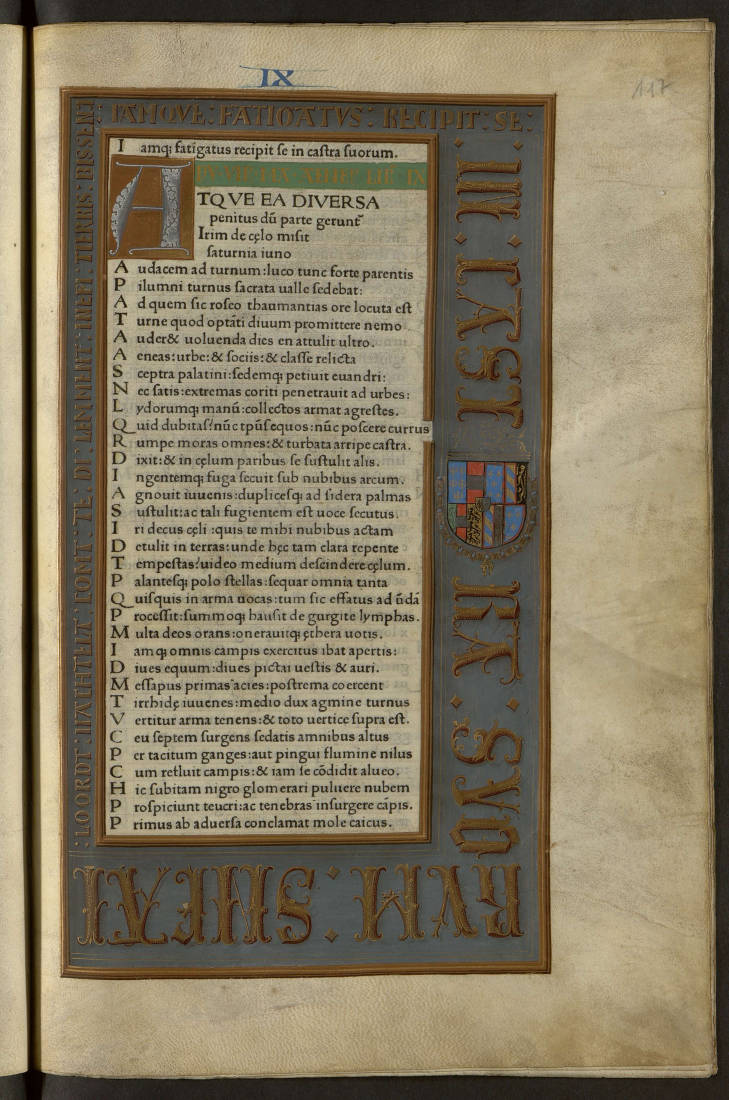 IX
117
IAMQVE: FATIGATVS: RECIPIT: SE:
IN. CAST
RA. SVO
RVM.
I amq; fatigatus recipit se in castra suorum.
ATQVE EA DIVERSA
penitus dū parte gerunt᷑
Irim de cęlo misit
saturnia iuno
A udacem ad turnum: luco tunc forte parentis
P ilumni turnus sacrata ualle sedebat:
A d quem sic roseo thaumantias ore locuta est
T urne quod optāti diuum promittere nemo
A uder& uoluenda dies en attulit ultro.
A eneas: urbe: & sociis: & classe relicta
S ceptra palatini: sedemq; petiuit euandri:
N ec satis: extremas coriti penetrauit ad urbes:
L ydorumq; manū: collectos armat agrestes.
Q uid dubitas? nūc tp̄us equos: nūc poscere currus
R umpe moras omnes: & turbata arripe castra.
D ixit: & in cęlum paribus se sustulit alis.
I ngentemq; fuga secuit sub nubibus arcum.
A gnouit iuuenis: duplicesq; ad sidera palmas
S ustulit: ac tali fugientem est uoce secutus.
I ri decus cęli: quis te mihi nubibus actam
D etulit in terras: unde hęc tam clara repente
T empestas? uideo medium descindere cęlum.
P alantesq; polo stellas: sequar omnia tanta
Q uisquis in arma uocas: tum sic effatus ad ūdā
P rocessit: summoq; hausit de gurgite lymphas.
M ulta deos orans: onerauitq; ęthera uotis.
I amq; omnis campis exercitus ibat apertis:
D iues equum: diues pictai uestis & auri.
M essapus primas acies: postrema coercent
T irrhidę iuuenes: medio dux agmine turnus
V ertitur arma tenens: & toto uertice supra est.
C eu septem surgens sedatis amnibus altus
P er tacitum ganges: aut pingui flumine nilus
C um refluit campis: & iam se cōdidit alueo.
H ic subitam nigro glomerari puluere nubem
P rospiciunt teucri: ac tenebras insurgere cāpis.
P rimus ab aduersa conclamat mole caicus.